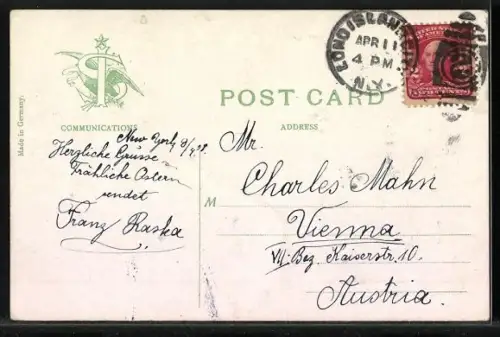 LONG ISLAND CITY
APR 11
4 PM
N.Y.
2
POST CARD
COMMUNICATIONS
ADDRESS
Made in Germany.
New York
Herzliche Grüsse
Fröhliche Ostern
sendet
Franz Raska
Mr.
Charles Mahn
M
Vienna
VII. Bez. Kaiserstr. 10.
Austria.